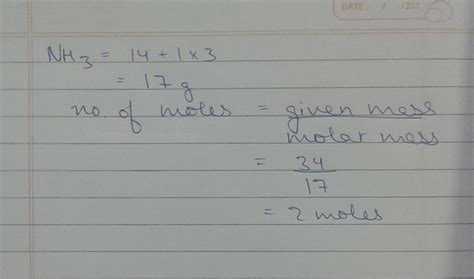 DATE: / /201
NH3 = 14 + 1 x 3
= 17 g
no. of moles = given mass
molar mass
= 34
17
= 2 moles